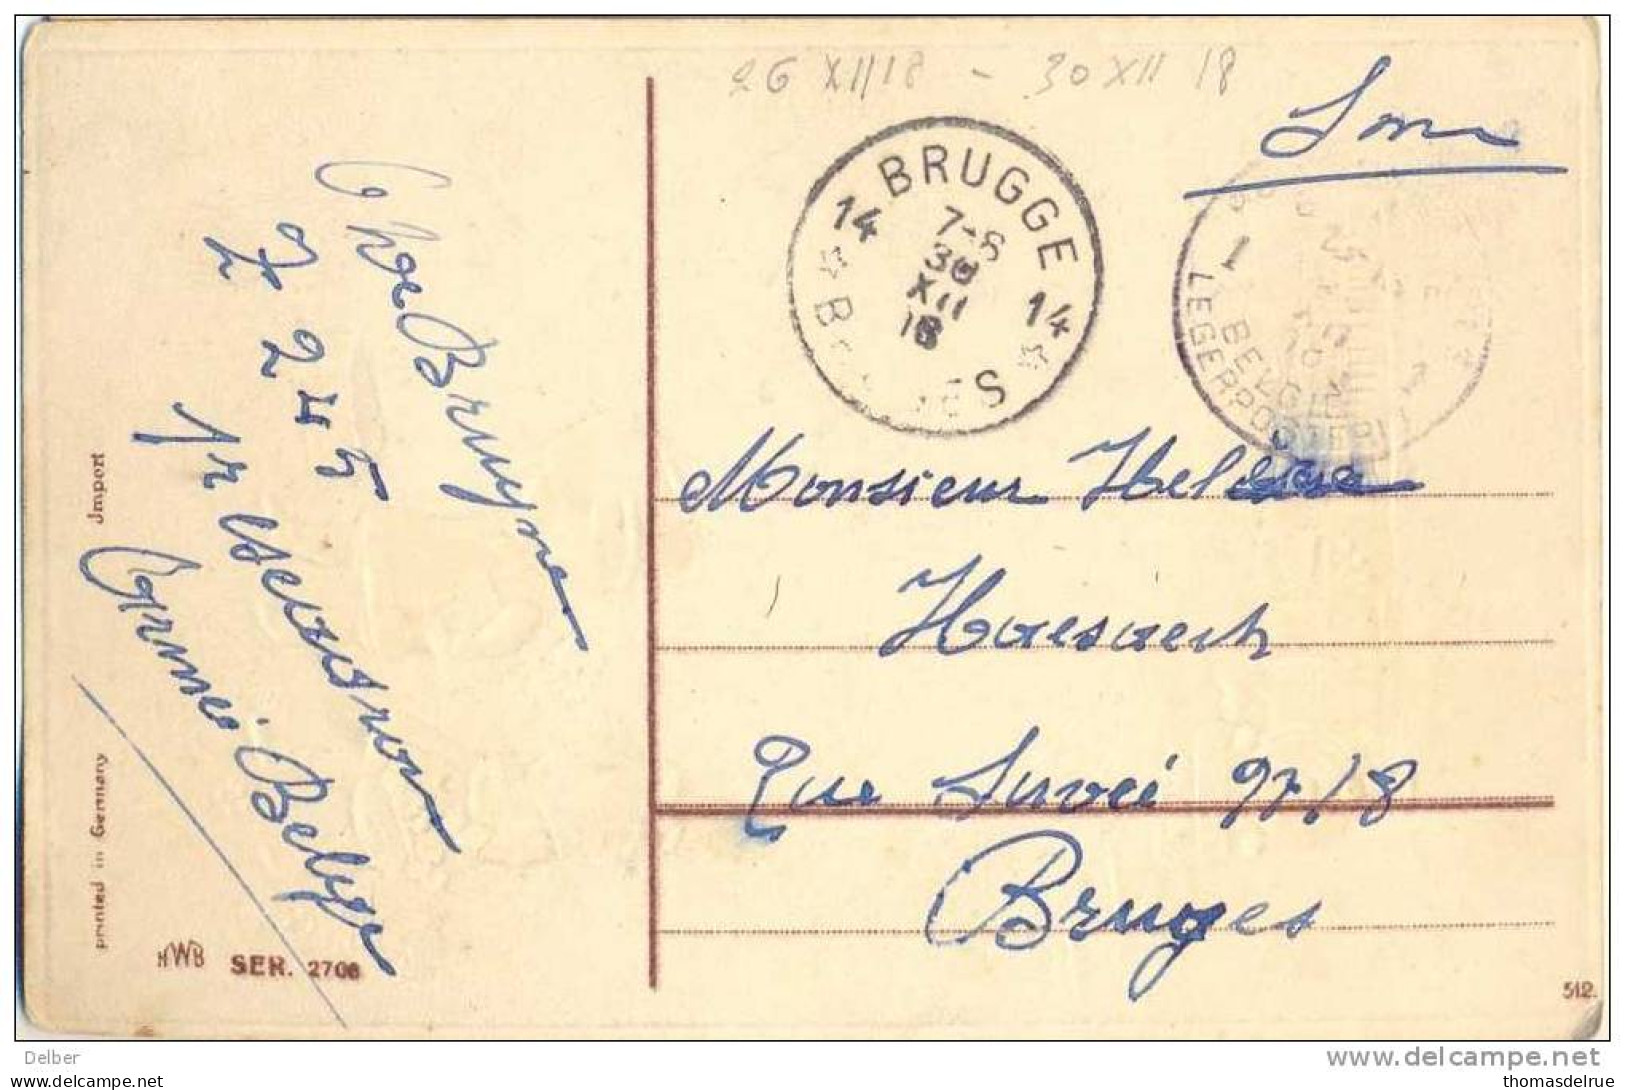 26 XII 18 - 30 XII 18
S.M.
BRUGGE
14 14
7-8
30
XII
18
1
BELGIË
LEGERPOSTERIJ
De Bruyne
Z 245
1r escadron
Armée Belge
Monsieur
Rue 97/8
Bruges
Import
printed in Germany
HWB SER. 2708
512.
Delber
www.delcampe.net
thomasdelrue